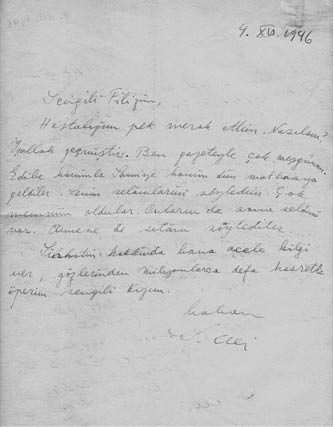 4. XII. 1946
Sevgili Filizim,
Hastalığını pek merak ettim. Nasılsın?
İnşallah geçmiştir. Ben gazeteyle çok meşgulüm.
Edibe hanımla Samiye hanım dün matbaaya
geldiler. Senin selâmlarını söyledim. Çok
memnun oldular. Onların da sana selâmı
var. Annene de selâm söylediler.
hakkında bana acele bilgi
ver, gözlerinden milyonlarca defa hasretle
öperim sevgili kızım.
baban